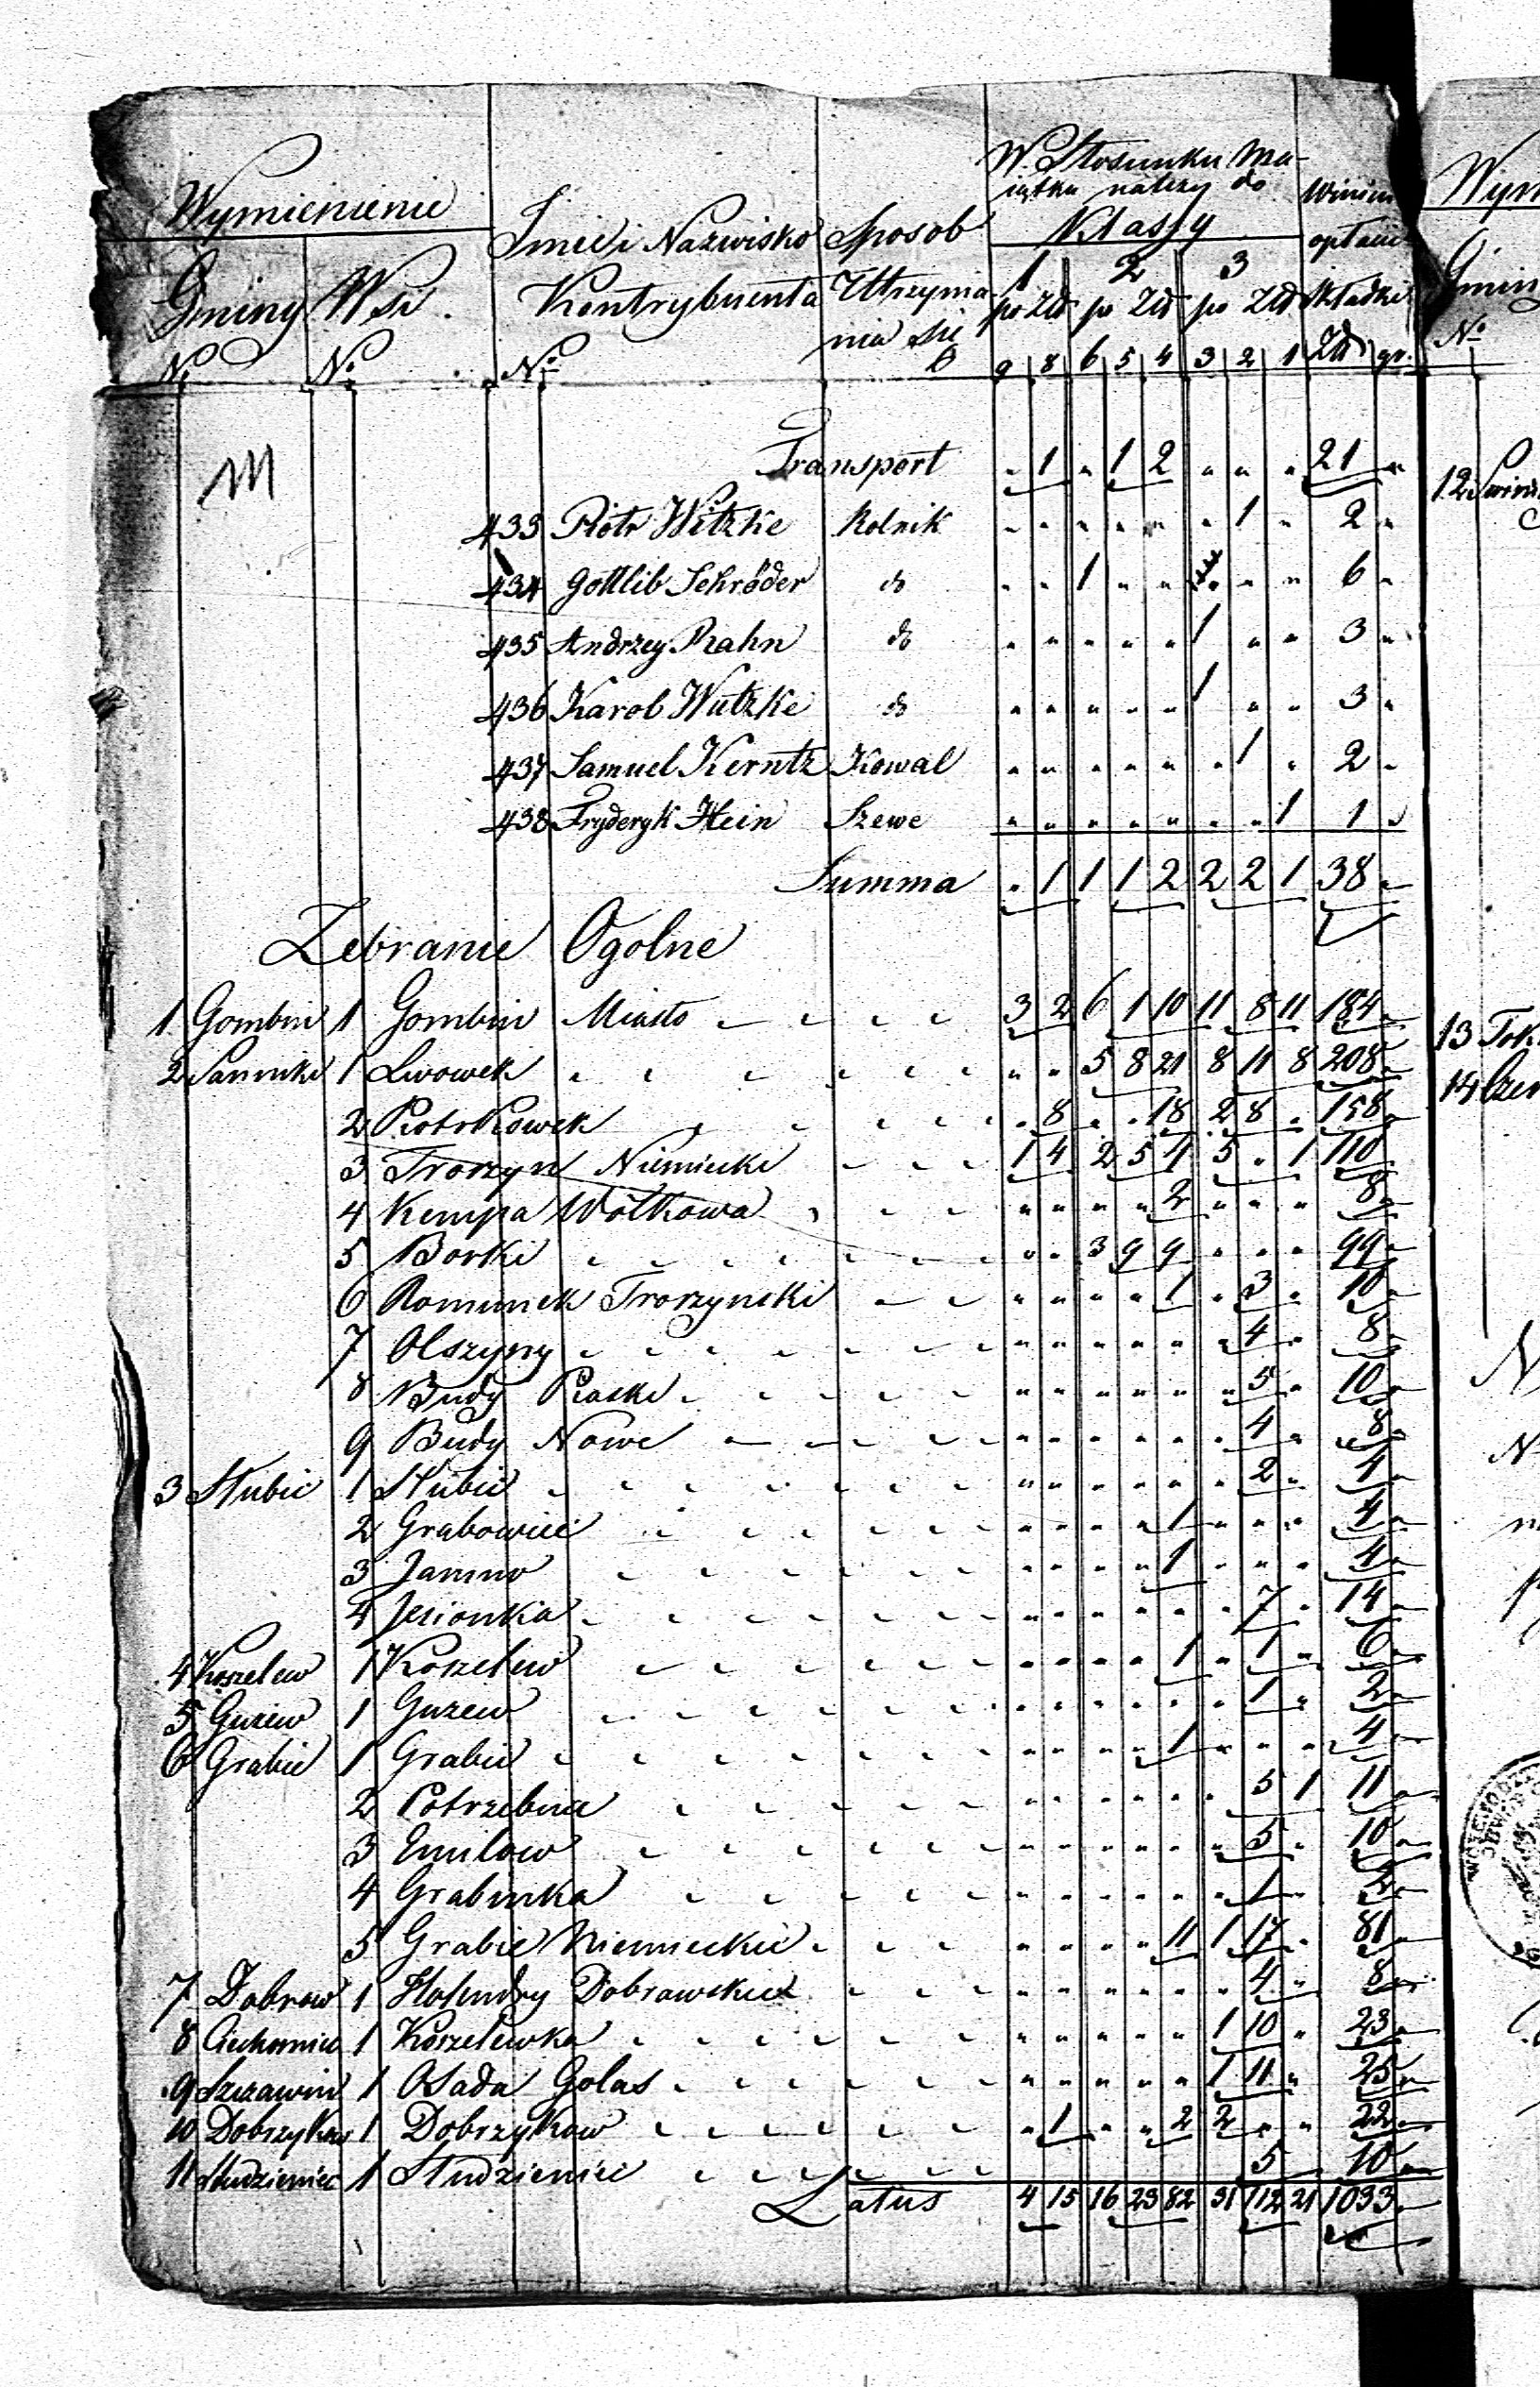 Wymienienie
Gminy
Wsi
No
No
Imie i Nazwisko
Kontrybuenta
No
Sposob
Utrzyma-
nia się
W Stosunku Ma-
iątku należy do
Klassy
1 2 3
po Zł po Zł po Zł
9 8 6 5 4 3 2 1
Winien
opłacić
Składki
Zł gr.
Transport " 1 " 1 2 " " " 21 "
433 Piotr Witzke Rolnik " " " " " " 1 " 2 "
434 Gottlib Schröder do " " 1 " " " " " 6 "
435 Andrzey Rahn do " " " " " 1 " " 3 "
436 Karol Wutzke do " " " " " 1 " " 3 "
437 Samuel Kerntz Kowal " " " " " " 1 " 2 "
438 Fryderyk Hein Szewc " " " " " " " 1 1 "
Summa " 1 1 1 2 2 2 1 38 "
Zebranie Ogolne
1 Gombin 1 Gombin Miasto 3 2 6 1 10 11 8 11 184 "
2 Sanniki 1 Lwowek " " 5 8 21 8 11 8 208 "
2 Piotrkowek " 8 " " 18 2 8 " 158 "
3 Troszyn Niemiecki 1 4 2 5 4 5 " 1 110
4 Kempa Wolkowa " " " " 2 " " " 8 "
5 Borki " " 3 9 9 " " " 99 "
6 Romunek Troszynski " " " " 1 " 3 " 10 "
7 Olszyny " " " " " " 4 " 8 "
8 Budy Piaski " " " " " " 5 " 10 "
9 Budy Nowe " " " " " " 4 " 8 "
3 Słubic 1 Słubic " " " " " " 2 " 4 "
2 Grabowiec " " " " 1 " " " 4 "
3 Janino " " " " 1 " " " 4 "
4 Jesionka " " " " " " 7 " 14 "
4 Koszelew 1 Koszelew " " " " 1 " 1 " 6 "
5 Guzew 1 Guzew " " " " " " 1 " 2 "
6 Grabie 1 Grabie " " " " 1 " " " 4 "
2 Potrzebna " " " " " " 5 1 11 "
3 Emilow " " " " " " 5 " 10 "
4 Grabinka " " " " " " 1 " 2 "
5 Grabie Niemieckie " " " " 11 1 17 " 81 "
7 Dobrow 1 Holendry Dobrowskie " " " " " " 4 " 8 "
8 1 Koszelewka " " " " " 1 10 " 23 "
9 Szczawin 1 Osada Golas " " " " " 1 11 " 25 "
10 Dobrzykow 1 Dobrzykow " 1 " " 2 2 " " 22 "
11 Studzieniec 1 Studzieniec 5 10 "
Latus 4 15 16 23 82 31 112 21 1033 "
No
12
13
14